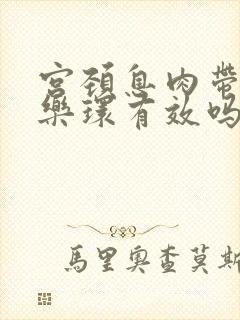 宫颈息肉带
乐环有效吗
馬里奥查莫斯